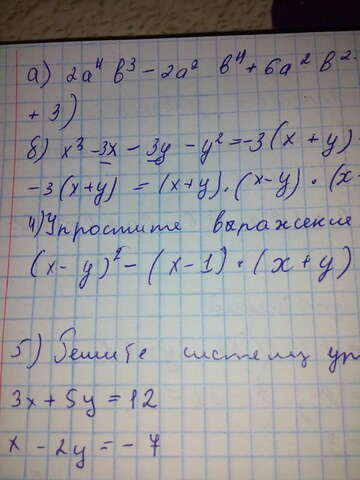 а) 2a⁴ b³ - 2a² b⁴ + 6a² b²
+ 3)
б) x³ - 3x - 3y - y² = -3(x + y)
-3(x+y) = (x+y)·(x-y)·(x-
4) Упростите выражение
(x-y)² - (x-1)·(x+y)
5) Решите систему ур
3x + 5y = 12
x - 2y = -7